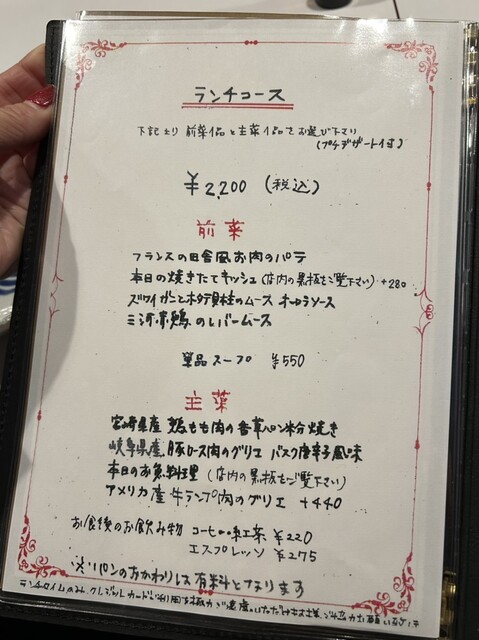 ランチコース
下記より 前菜1品と主菜1品をお選び下さい
(プチデザート付)
¥2,200 (税込)
前菜
フランスの田舎風お肉のパテ
本日の焼きたてキッシュ(店内の黒板をご覧下さい) +280
ズワイガニとホタテ貝柱のムース オーロラソース
三河赤鶏のレバームース
単品スープ ¥550
主菜
宮崎県産 鶏もも肉の香草パン粉焼き
岐阜県産 豚ロース肉のグリエ バスク唐辛子風味
本日のお魚料理 (店内の黒板をご覧下さい)
アメリカ産 牛ランプ肉のグリエ +440
お食後のお飲み物 コーヒーor紅茶 ¥220
エスプレッソ ¥275
パンのおかわりは有料となります
ランチタイムのみ、クレジットカードご利用を極力ご遠慮いただけます様、ご協力お願い